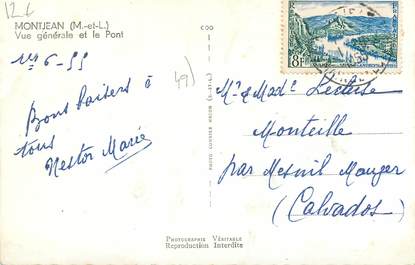 12f
MONTJEAN (M.-et-L.)
Vue générale et le Pont
6-55
Bons baisers à
tous
Nestor Marie
COO
49)
8F
Mr & Mad. Lecluse
Monteille
par Mesnil Mauger
(Calvados)
PHOTOGRAPHIE VÉRITABLE
Reproduction Interdite